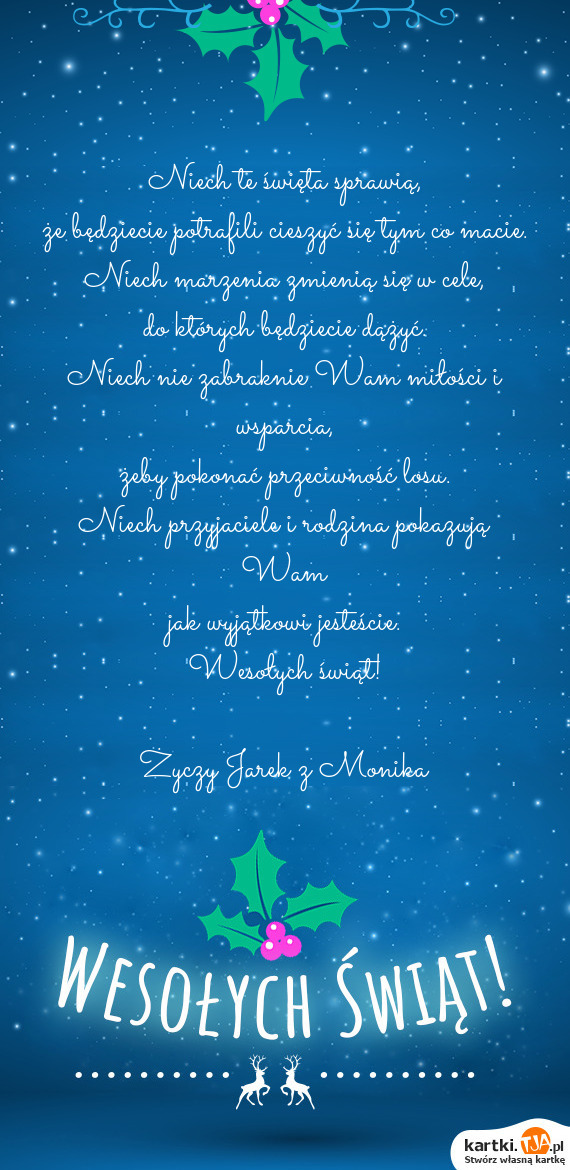 Niech te święta sprawią,
że będziecie potrafili cieszyć się tym co macie.
Niech marzenia zmienią się w cele,
do których będziecie dążyć.
Niech nie zabraknie Wam miłości i
wsparcia,
żeby pokonać przeciwność losu.
Niech przyjaciele i rodzina pokazują
Wam
jak wyjątkowi jesteście.
Wesołych świąt!
Życzy Jarek z Monika
Wesołych Świąt!
kartki.TJA.pl
Stwórz własną kartkę